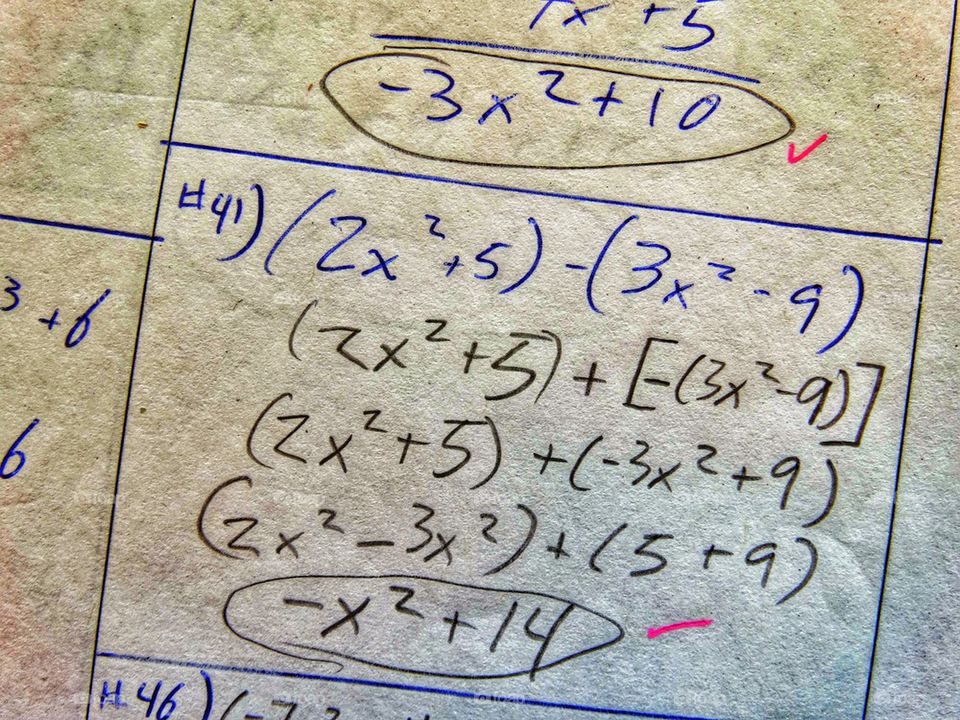 7x + 5
-3x² + 10
#41) (2x² + 5) - (3x² - 9)
(2x² + 5) + [-(3x² - 9)]
(2x² + 5) + (-3x² + 9)
(2x² - 3x²) + (5 + 9)
-x² + 14
³ + 6
6
#46)